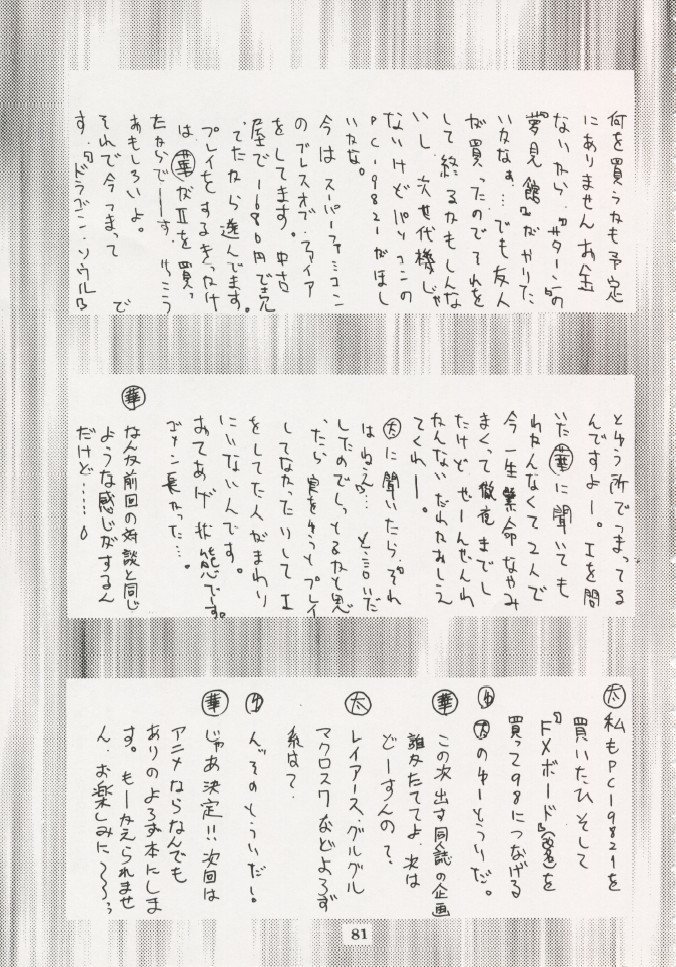 何を買うかも予定
にありません お金
ないから、『サターン』の
『夢見館』がやりた
いかなぁ…でも友人
が買ったのでそれを
して終るかもしんな
いし、次世代機じゃ
ないけどパソコンの
PC-9821がほし
いかな。
今はスーパーファミコン
のブレスオブ・ファイア
をしてます。中古
屋で1680円で売
ってたから遊んでます。
プレイをするきっかけ
は(華)がⅡを買っ
たからでーす。けっこう
おもしろいよ。
それで今つまって で
す。『ドラゴン・ソウル』
とゆう所でつまってる
んですよー。Ⅰを間
いた(華)に聞いても
わかんなくて2人で
今一生懸命なやみ
まくって徹夜までし
たけどぜーんぜんわ
かんないだれかおしえ
てくれー。
(太)に聞いたら、「それ
はねえ」…と言いだ
したのでしってるかと思
ったら実をゆうとプレイ
してなかったりしてⅠ
をしてた人がまわり
にいないんです。
おてあげ状態です。
ゴメン長かった…。
(華) なんか前回の対談と同じ
ような感じがするん
だけど……
(太) 私もPC-9821を
買いたひそして
『FXボード』を
買って98につなげる
(太)のゆーとうりだ。
(華) この次出す同人誌の企画
誰かたててよ、次は
どーすんの？
(太) レイアース、グルグル
マクロスクなどよろず
系は？
んーそのとうりだー！
(華) じゃあ決定!! 次回は
アニメならなんでも
ありのよろず本にしま
す。もーかえられませ
ん、お楽しみに～
81